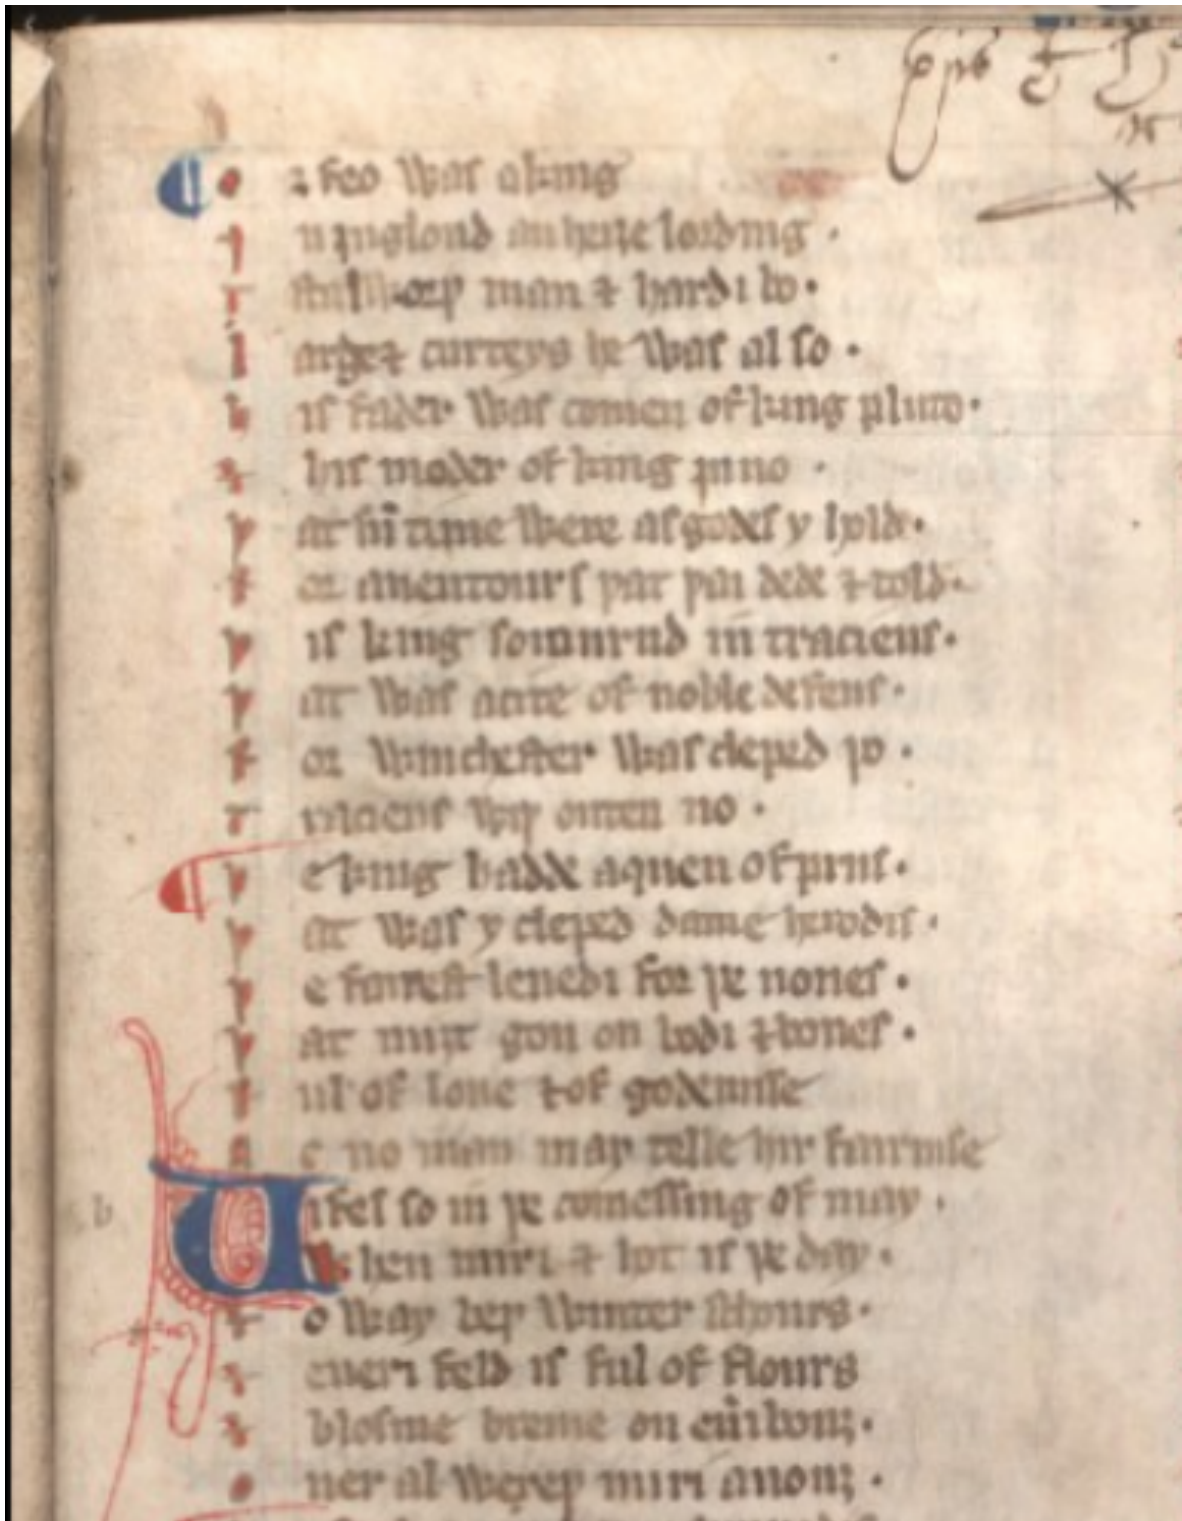 Orfeo was a king
In Inglond an heiȝe lording .
stalworþ man ⁊ hardi bo .
Large ⁊ curteys he was al so .
His fader was comen of king pluto .
⁊ his moder of king juno .
Þat sū time were as godes y hold .
For auentours þat þai dede ⁊ told .
Þis king soiournd in traciens .
Þat was acite of noble defens .
For Winchester was cleped þo .
Traciens wiþ outen no .
Þe king hadde aquen of priis .
Þat was y cleped dame herodis .
Þe fairest leuedi for þe nones .
Þat miȝt gon on bodi ⁊ bones .
Ful of loue ⁊ of godenisse
Ac no man may telle hir fairnise
b Bifel so in þe comessing of may .
When miri ⁊ hot is þe day .
⁊ o way beþ winter schours .
⁊ eueri feld is ful of flours
⁊ blosme breme on eūi bouȝ .
Ouer al wexeþ miri anouȝ .